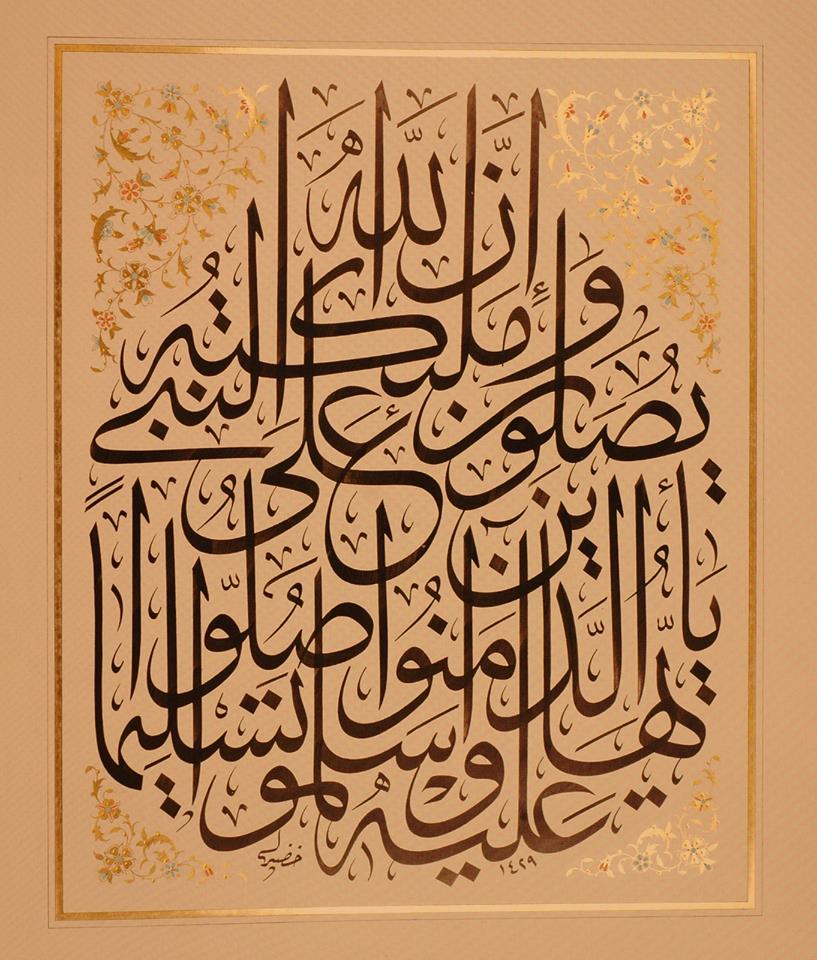 إِنَّ اللهَ
وَمَلَئِكَتَهُ
يُصَلُّونَ عَلَى النَّبِيِّ
يَا أَيُّهَا الَّذِينَ آمَنُوا صَلُّوا
عَلَيْهِ وَسَلِّمُوا تَسْلِيمًا
١٤٢٩